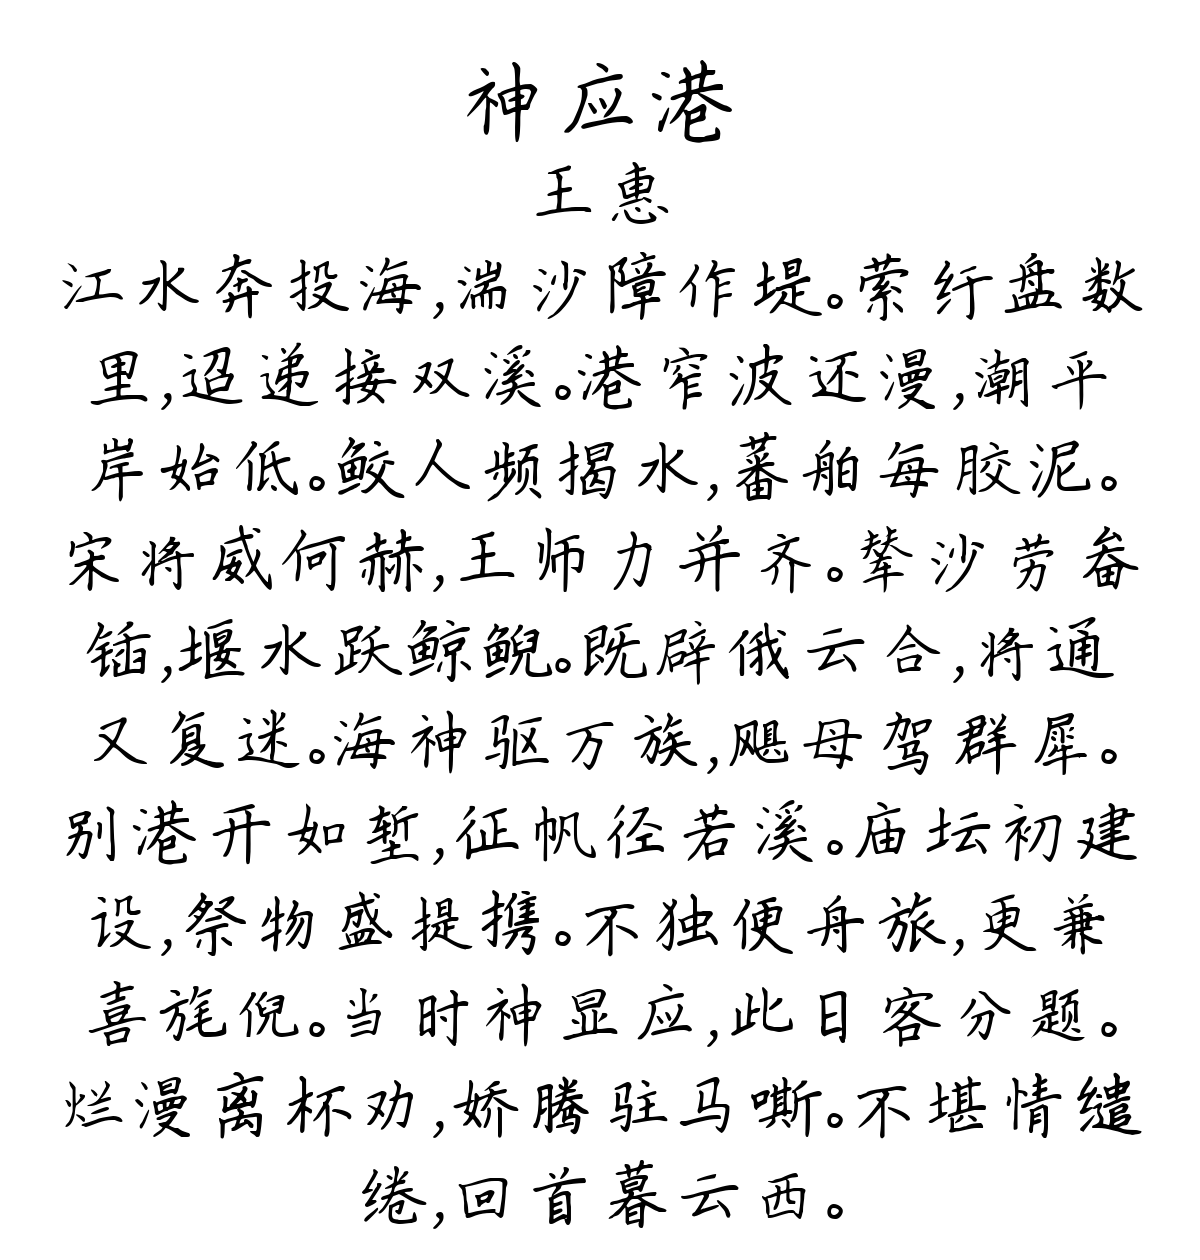 神应港
王惠
江水奔投海,湍沙障作堤。萦纡盘数
里,迢递接双溪。港窄波还漫,潮平
岸始低。鲛人频揭水,蕃舶每胶泥。
宋将威何赫,王师力并齐。辇沙劳畚
锸,堰水跃鲸鲵。既辟俄云合,将通
又复迷。海神驱万族,飓母驾群犀。
别港开如堑,征帆径若溪。庙坛初建
设,祭物盛提携。不独便舟旅,更兼
喜旄倪。当时神显应,此日客分题。
烂漫离杯劝,娇腾驻马嘶。不堪情缱
绻,回首暮云西。